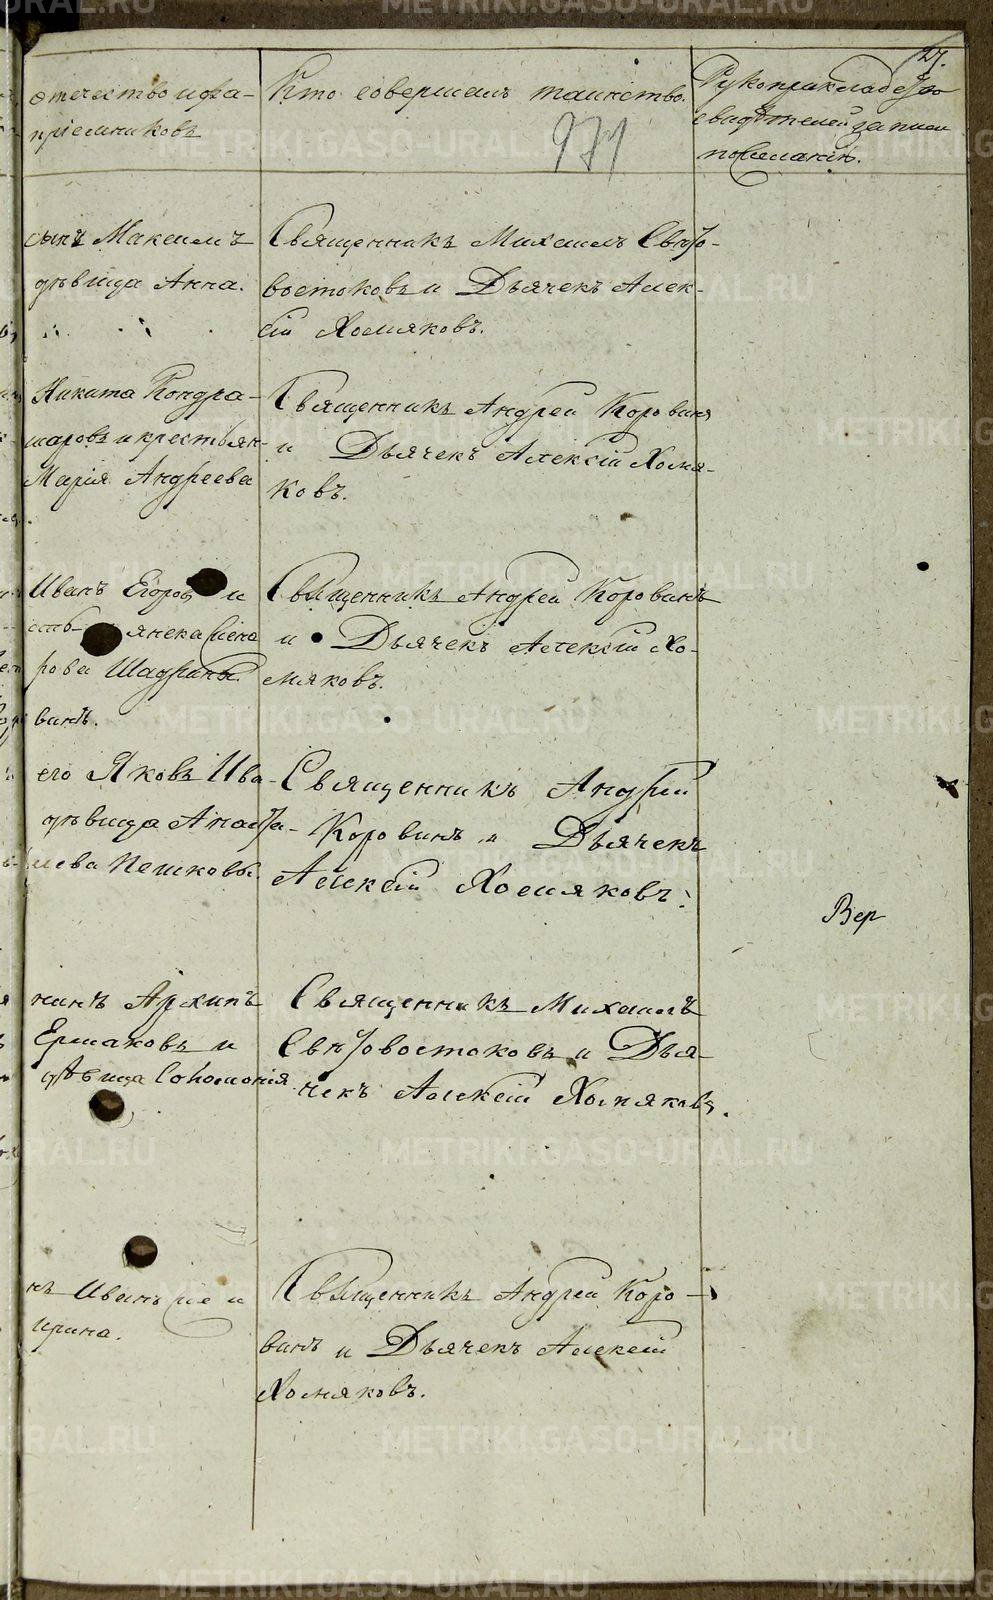 отечество и фа-
пріемниковъ
Кто совершалъ таинство.
971
Рукоприкладство
свидѣтелей записи
по желанію.
сынъ Максимъ
дѣвица Анна.
Священникъ Михаилъ Свѣто-
востоковъ и Дьячекъ Алек-
сій Хомяковъ.
Никита Кондра-
шаровъ и крестьян-
Марія Андреева
Священникъ Андрей Коровинъ
и Дьячекъ Алексій Хомя-
ковъ.
Иванъ Егоровъ и
янека
рова Шадрины.
винъ.
Священникъ Андрей Коровинъ
и Дьячекъ Алексій Хо-
мяковъ.
его Яковъ Ива-
дѣвица Анаста-
Пешковы.
Священникъ Андрей
Коровинъ и Дьячекъ
Алексій Хомяковъ.
Вер
нинъ Архипъ
Ермаковъ и
дѣвица Соломонія
Священникъ Михаилъ
Свѣтовостоковъ и Дья-
чекъ Алексій Хомяковъ.
нъ Иванъ и
Ирина.
Священникъ Андрей Коро-
винъ и Дьячекъ Алексій
Хомяковъ.
METRIKI.GASO-URAL.RU